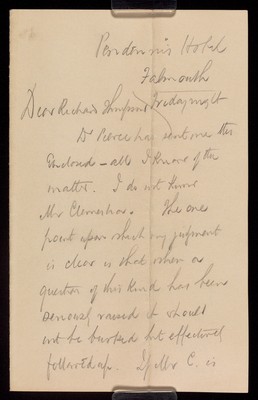 Pendennis Hotel
Falmouth
Dear Richard Thompson Friday night
Dr Pierce has sent me the
Enclosed – all I know of the
matter. I do not know
Mr Clemesha. The one
point upon which my judgment
is clear is that when a
question of this kind has been
seriously raised it should
not be burked but effectively
followed up. If Mr C. is